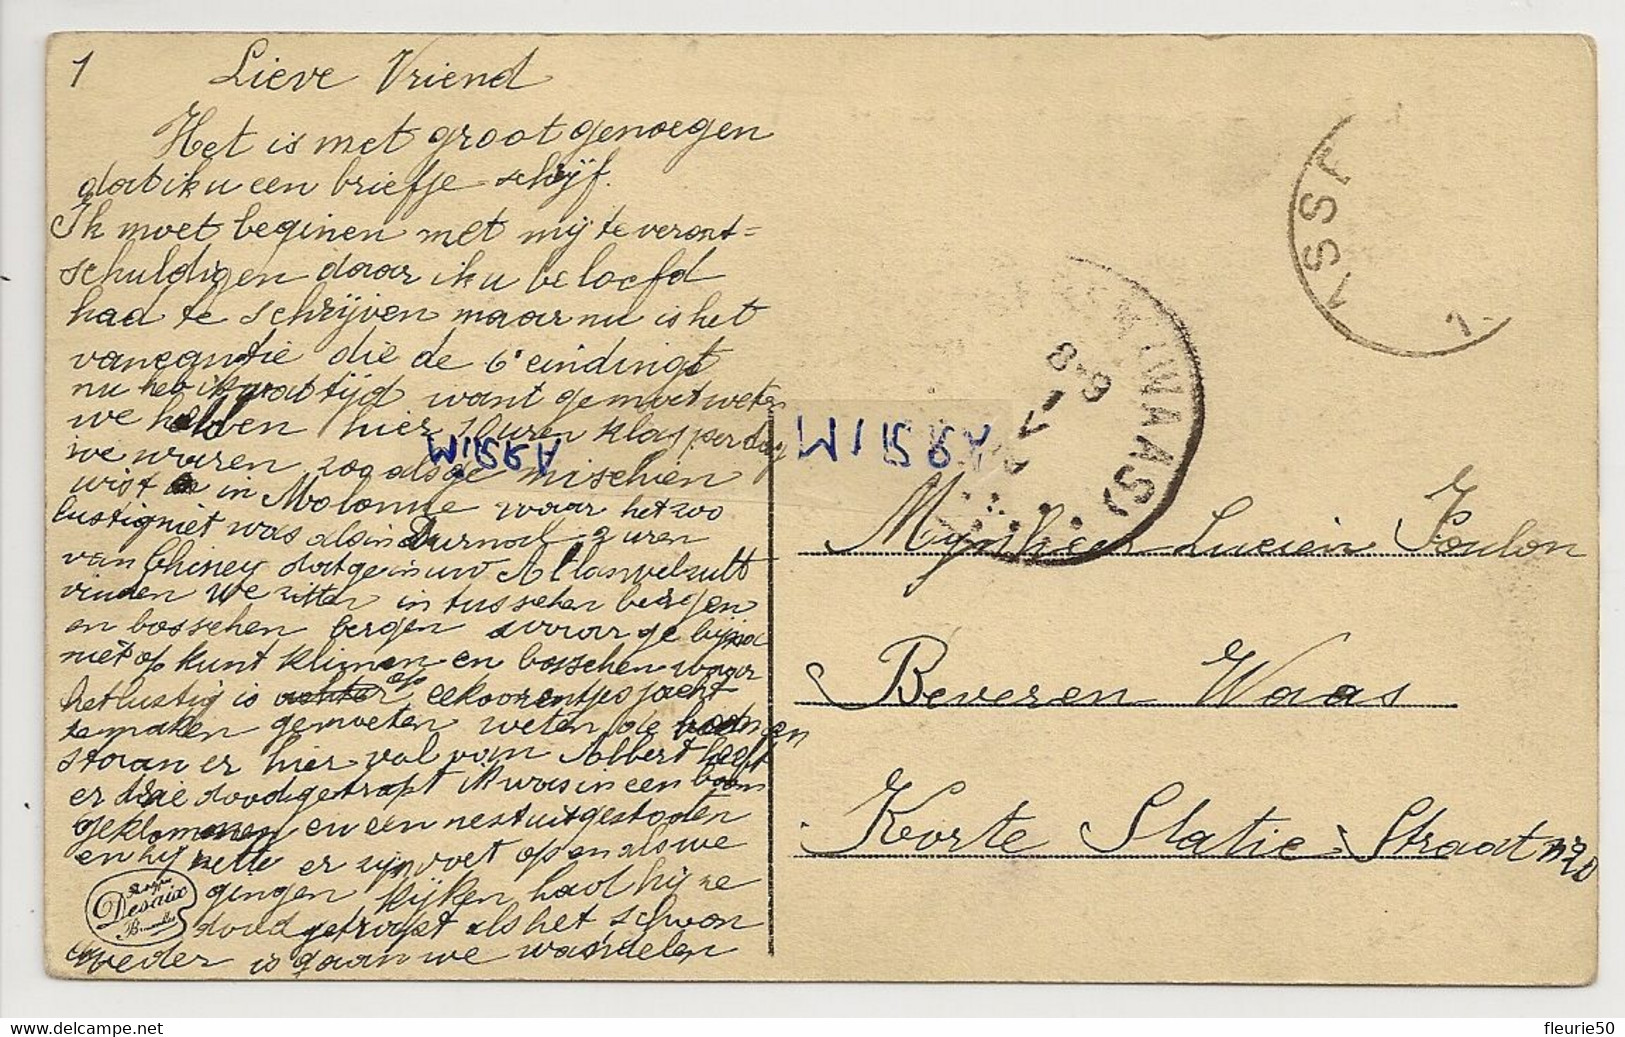 1
Lieve Vriend
Het is met groot genoegen
dat ik u een briefje schrijf.
Ik moet beginen met mij te veront=
schuldigen daar ik u beloefd
had te schrijven maar nu is het
die de 6e eindingt
nu heb ik tijd want ge moet weten
we hebben hier 10 uren klas per dag
we waren zoo als ge mischien
wist in Malonne waar het zoo
lustig niet was als in Durnal 2 uren
van Chiney dat ge in uw Atlas wel zult
vinden we zitten in tusschen bergen
en bosschen bergen waar ge bijna
niet op kunt klimen en bosschen waar
het lustig is op eekoorentjes jacht
te maken ge moeten weten de boomen
staan er hier vol van Albert heeft
er drie dood getrapt ik was in een boom
geklommen en een nest uitgestoken
en hij zette er zijn voet op en als we
gingen kijken had hij ze
dood getrapt als het schoon
weder is gaan we wandelen
Desaix
MUSRA
MUSRA
(WAAS)
8-9
ASSE
Mijnheer Lucien Foulon
Beveren Waas
Korte Statie Straat n° 20
fleurie50